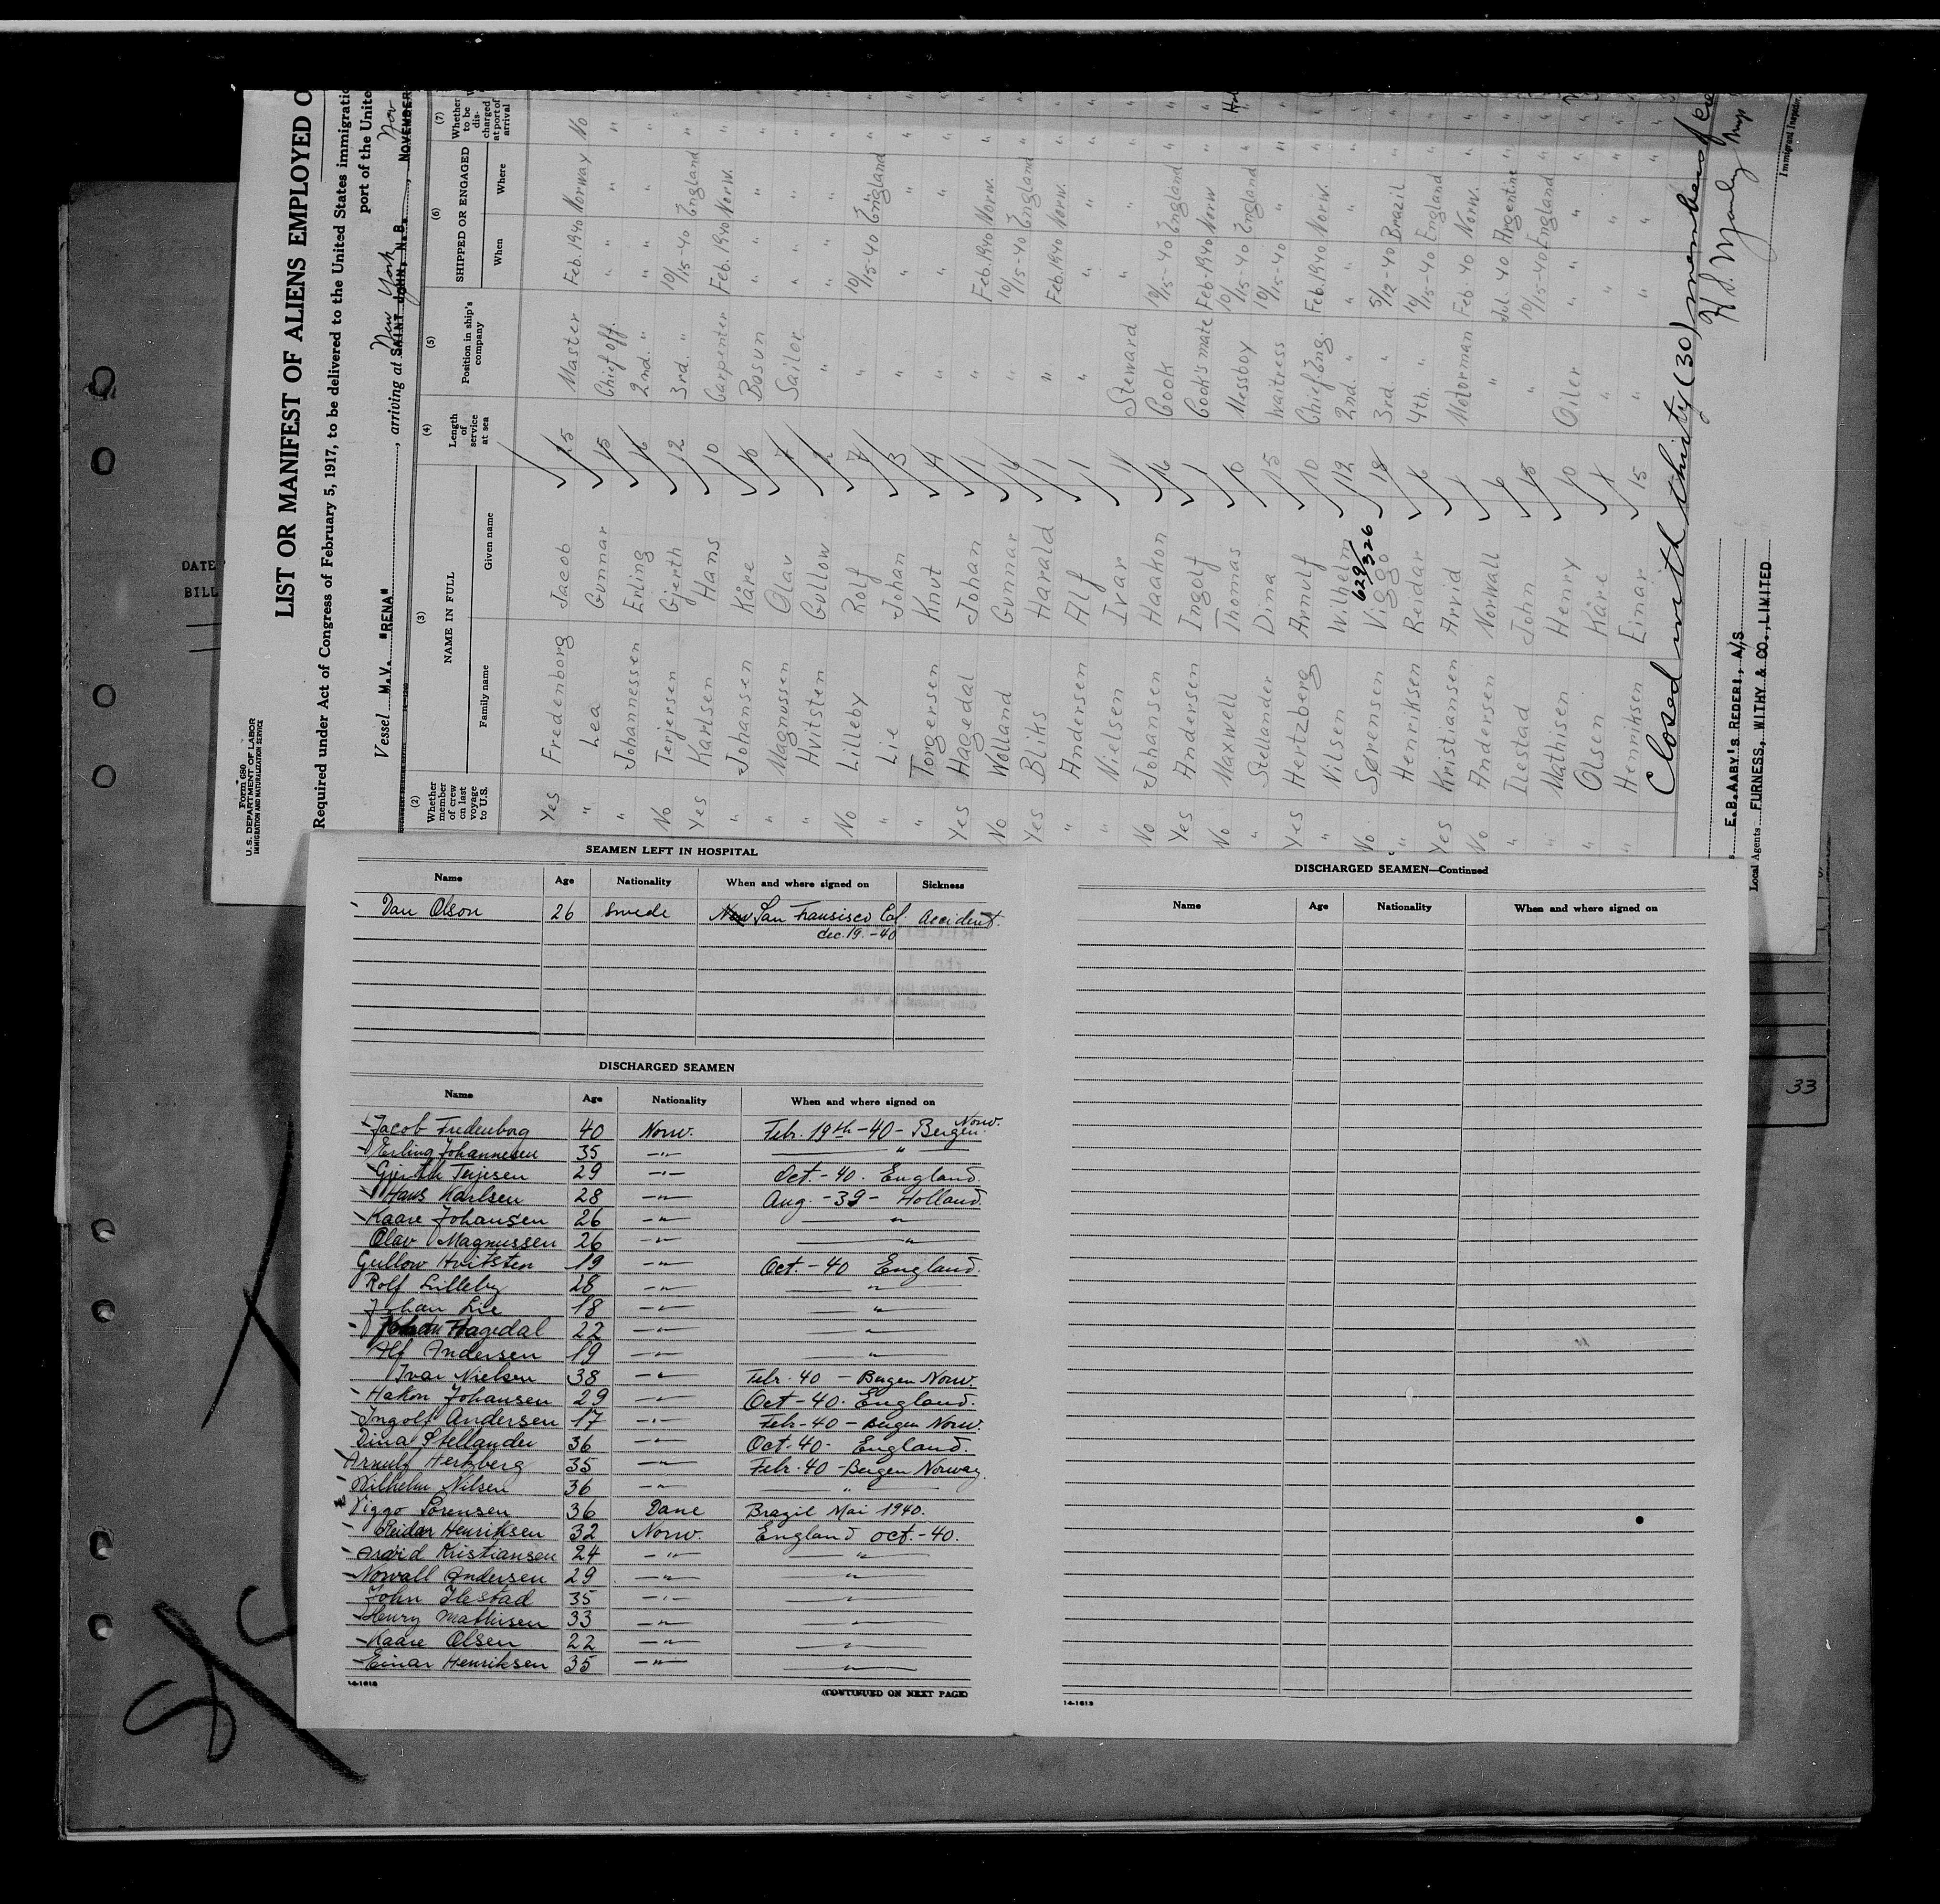 Form 680
U. S. DEPARTMENT OF LABOR
IMMIGRATION AND NATURALIZATION SERVICE
LIST OR MANIFEST OF ALIENS EMPLOYED O
Required under Act of Congress of February 5, 1917, to be delivered to the United States immigratio
port of the Unite
Vessel M.V. "RENA" , arriving at SAINT JOHN, N.B. New York , NOVEMBER Nov
(2) (3) (4) (5) (6) (7)
Whether member of crew on last voyage to U.S. NAME IN FULL Length of service at sea Position in ship's company SHIPPED OR ENGAGED Whether to be discharged at port of arrival
Family name Given name When Where
Yes Fredenborg Jacob 25 Master Feb. 1940 Norway No
" Lea Gunnar 15 Chief off. " " "
" Johannessen Erling 16 2nd. " " " "
No Terjersen Gjerth 12 3rd. " 10/15-40 England "
Yes Karlsen Hans 10 Carpenter Feb. 1940 Norw. "
" Johansen Kåre 10 Bosun " " "
" Magnussen Olav 7 Sailor " " "
" Hvitsten Gullow 2 " " " "
No Lilleby Rolf 7 " 10/15-40 England "
" Lie Johan 3 " " " "
" Torgersen Knut 4 " " " "
Yes Hagedal Johan 1 " Feb. 1940 Norw. "
No Wolland Gunnar 14 " 10/15-40 England "
Yes Bliks Harald 1 " Feb. 1940 Norw. "
" Andersen Alf 1 " " " "
" Nielsen Ivar 11 Steward " " "
No Johansen Haakon 16 Cook 10/15-40 England "
Yes Andersen Ingolf 1 Cook's mate Feb-1940 Norw "
No Maxwell Thomas 10 Messboy 10/15-40 England "
" Stellander Dina 15 Waitress 10/15-40 " "
Yes Hertzberg Arnulf 10 Chief. Eng. Feb. 1940 Norw. "
" Nilsen Wilhelm 12 2nd. " " " "
629/326
No Sørensen Viggo 18 3rd " 5/12-40 Brazil "
" Henriksen Reidar 6 4th. " 10/15-40 England "
Yes Kristiansen Arvid 1 Motorman Feb 40 Norw. "
No Andersen Norwall 6 " Jul. 40 Argentine "
" Ilestad John 15 " 10/15-40 England "
" Mathisen Henry 10 Oiler " " "
" Olsen Kåre 4 " " " "
" Henriksen Einar 15 " " " "
Closed with thirty (30) members of
Immigrant Inspector.
E.B.AABY'S REDERI, A/S
Local Agents FURNESS, WITHY & CO., LIMITED
DATE
BILL
33
SEAMEN LEFT IN HOSPITAL
Name Age Nationality When and where signed on Sickness
Dan Olson 26 Swede San Fransisco Cal. Accident.
dec. 19. -40
DISCHARGED SEAMEN
Name Age Nationality When and where signed on
Jacob Fredenborg 40 Norw. Febr. 19th -40- Bergen. Norw.
Erling Johannesen 35 -"- "
Gjerth Terjesen 29 -"- Oct.- 40. England.
Hans Karlsen 28 -"- Aug -39- Holland.
Kaare Johansen 26 -"- "
Olav Magnussen 26 -"- "
Gullow Hvitsten 19 -"- Oct. -40 England.
Rolf Lilleby 28 -"- "
Johan Lie 18 -"- "
Johan Hagedal 22 -"- "
Alf Andersen 19 -"- "
Ivar Nielsen 38 -"- Febr. 40 - Bergen Norw.
Hakon Johansen 29 -"- Oct -40. England.
Ingolf Andersen 17 -"- Febr- 40 - Bergen Norw.
Dina Stellander 36 -"- Oct. 40- England.
Arnulf Hertzberg 35 -"- Febr. 40 -Bergen Norway.
Wilhelm Nilsen 36 -"- "
Viggo Sorensen 36 Dane Brazil Mai 1940.
Reidar Henriksen 32 Norw. England oct.-40.
Arvid Kristiansen 24 -"- "
Norwall Andersen 29 -"- "
John Ilestad 35 -"- "
Henry Mathisen 33 -"- "
Kaare Olsen 22 -"- "
Einar Henriksen 35 -"- "
14-1613
(CONTINUED ON NEXT PAGE)
DISCHARGED SEAMEN—Continued
Name Age Nationality When and where signed on
14-1613